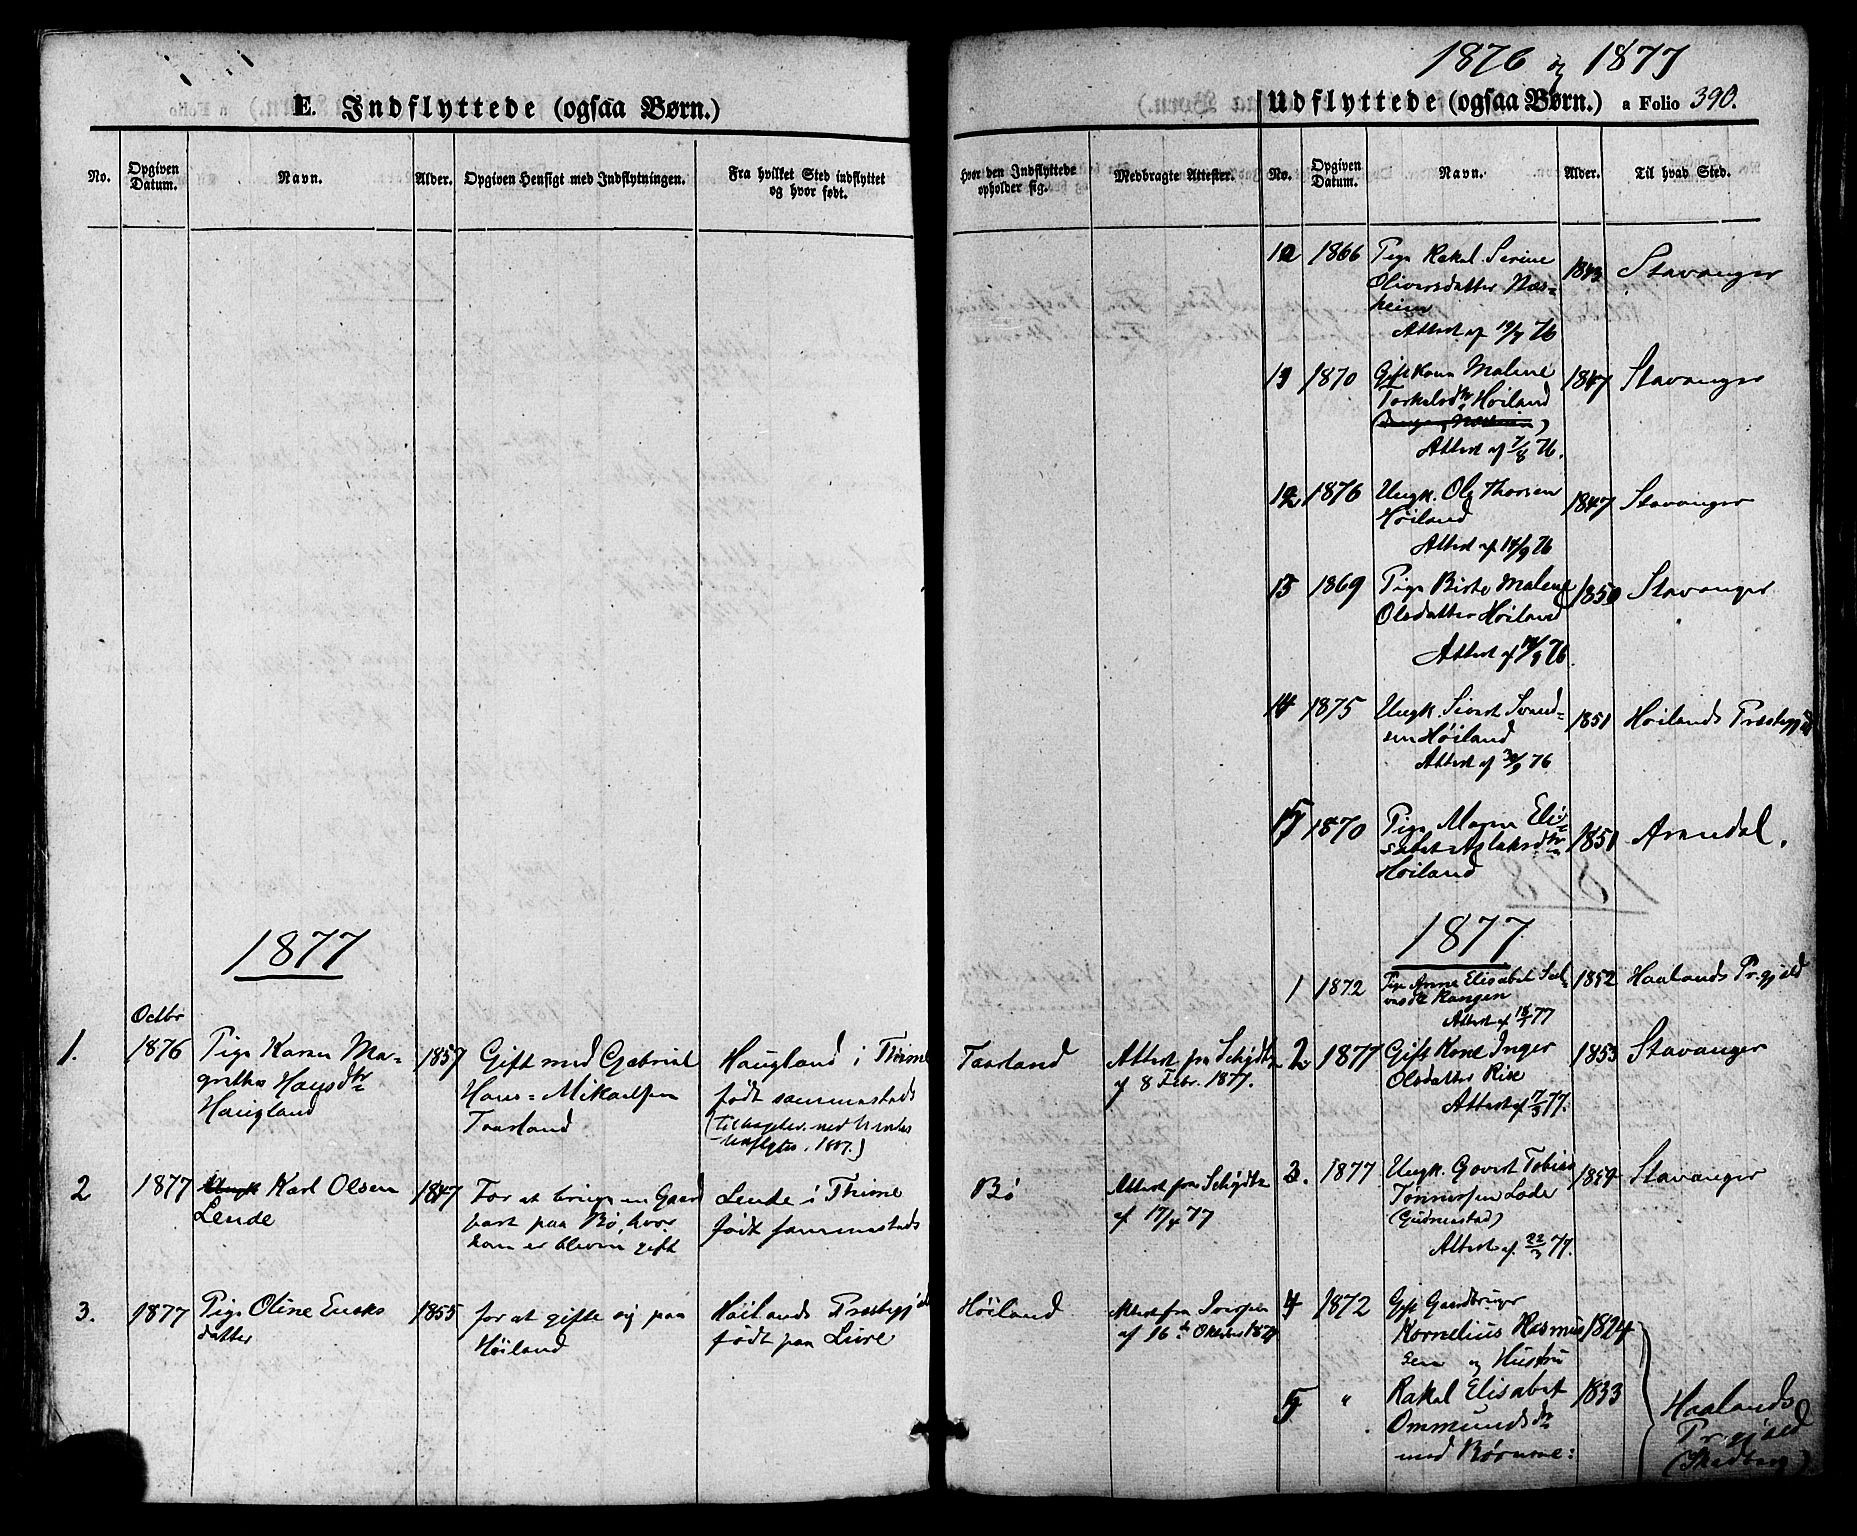 1876 og 1877
E. Indflyttede (ogsaa Børn.)
No.
Opgiven Datum.
Navn.
Alder.
Opgiven Hensigt med Indflytningen.
Fra hvilket Sted indflyttet og hvor født.
1877
1.
Octbr 1876
Pige Karen Ma-
grethe
Haugland
1857
Gift med Gabriel
Hans-Mikaelsen
Taarland
Haugland i Thime
født sammesteds
2
1877
Karl Olsen
Lende
1847
For at bruge en Gaard
part paa Bø, hvor
han er bleven gift
Lende i Thime
født sammesteds
3.
1877
Pige Oline
datter
1855
for at gifte sig paa
Høiland
Høilands Præstegjeld
født paa Lure
Udflyttede (ogsaa Børn.) a Folio 390.
Hvor den Indflyttede opholder sig.
Medbragte Attester.
No.
Opgiven Datum.
Navn.
Alder.
Til hvad Sted.
1866
Pige Rakel Serine
Oliversdatter Næs-
heim
Attest af 19/7 76
1843
Stavanger
1870
Gift Kone Malene
Torkelsdtr Høiland
Attest af 7/8 76.
1847
Stavanger
12
1876
Ungk. Ole Thorsen
Høiland
Attest af 14/9 76
1847
Stavanger
13
1869
Pige Birte Malene
Olsdatter Høiland
Attest af /9 76.
1850
Stavanger
14
1875
Ungk. Sivert Svend-
sen Høiland
Attest af 30/9 76
1851
Høilands Præstegjeld
1870
Pige Maren Eli-
sabet Aslaksdtr
Høiland
1851
Arendal.
1877
1
1872
Pige Anne Elisabet Sal-
vesdtr Rangen
Attest af 77
1852
Haalands Pr.gjeld
Taarland
Attest fra
af 8 Febr. 1877.
2
1877
Gift Kone Inger
Olsdatter Rise
Attest af 7/3 77.
1853
Stavanger
Bø
Attest fra
af 17/4 77
3.
1877
Ungk. Govert Tobias
Tønnessen Lode
(Gudmestad)
Attest af 22/3 77.
1854
Stavanger
Høiland
Attest fra
af 16de
4
1872
Gift Gaardbruger
Kornelius Rasmus
sen og Hustru
1824
5
"
Rakel Elisabet
Ommundsdtr
med Børnene:
1833
Haalands
Pr.gjeld